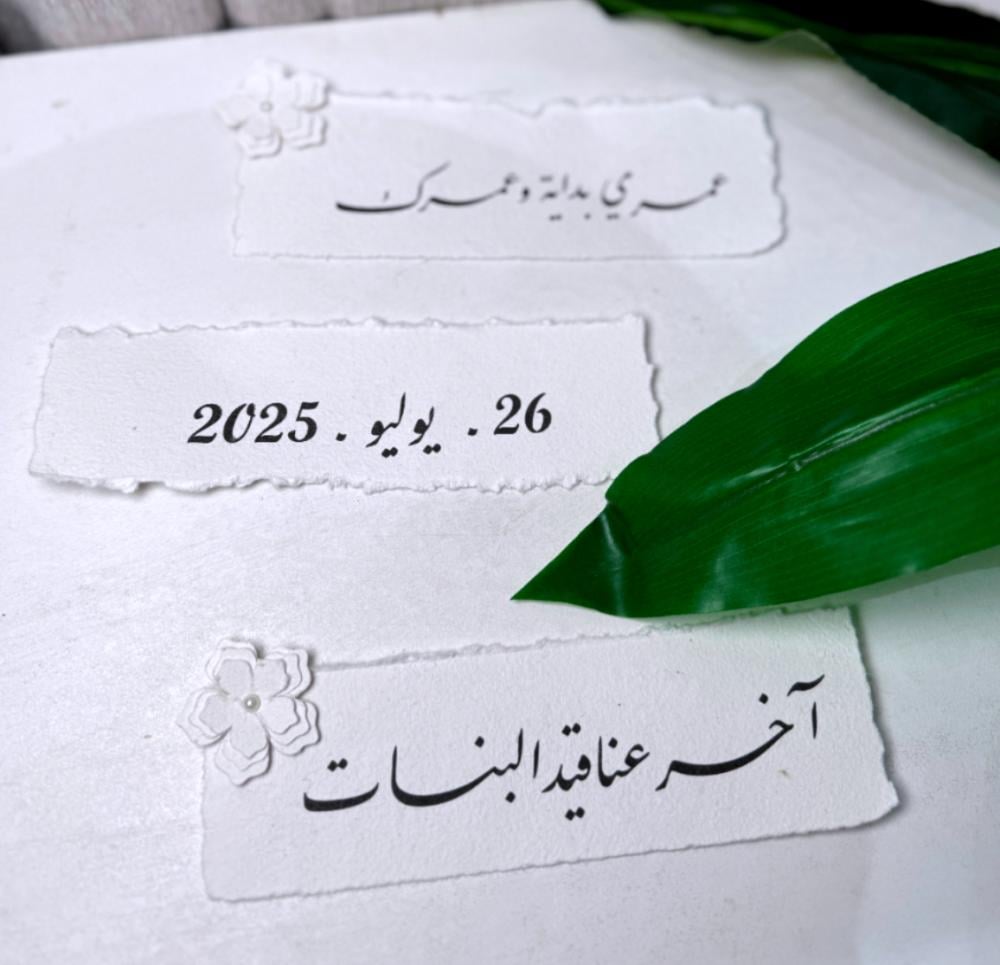 عمري بداية وعمرك
26 . يوليو . 2025
آخر عناقيد البنات